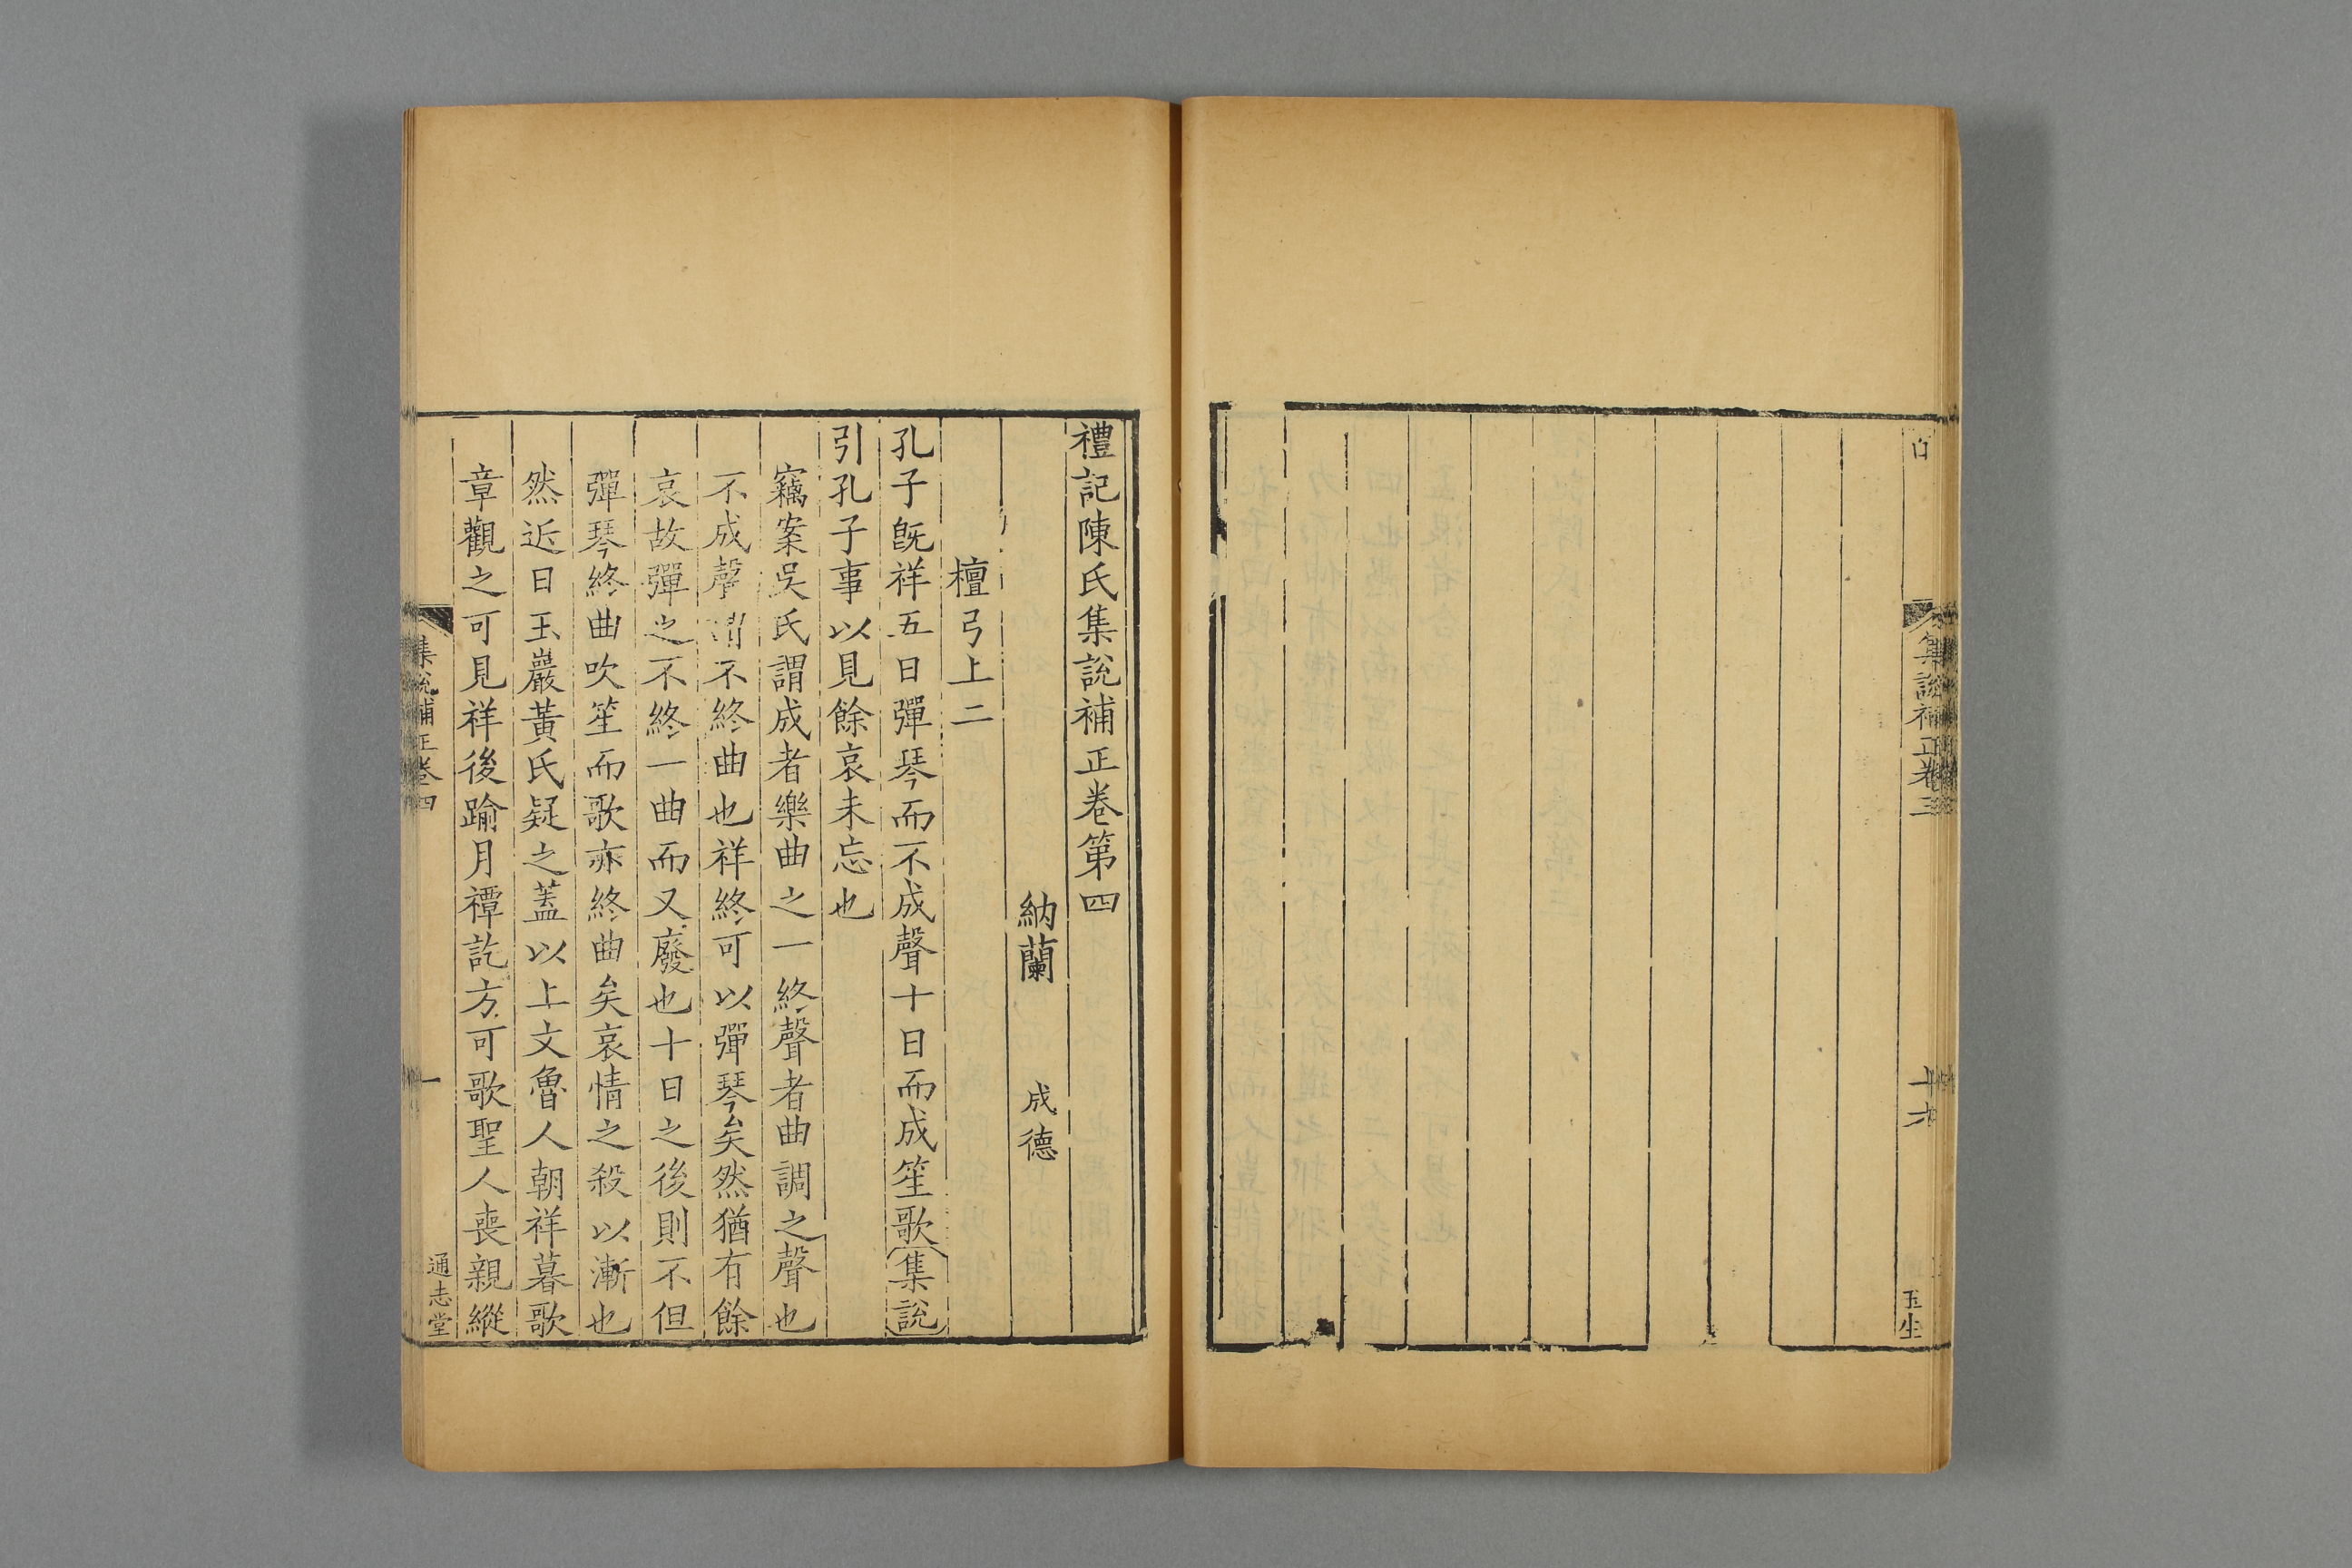 集說補正卷三
十六
禮記陳氏集說補正卷第四
納蘭 成德
檀弓上二
孔子旣祥五日彈琴而不成聲十日而成笙歌集說
引孔子事以見餘哀未忘也
竊案吳氏謂成者樂曲之一終聲者曲調之聲也
不成聲謂不終曲也祥終可以彈琴矣然猶有餘
哀故彈之不終一曲而又廢也十日之後則不但
彈琴終曲吹笙而歌亦終曲矣哀情之殺以漸也
然近日玉巖黃氏疑之蓋以上文魯人朝祥暮歌
章觀之可見祥後踰月禫訖方可歌聖人喪親縱
集說補正卷四
一
通志堂